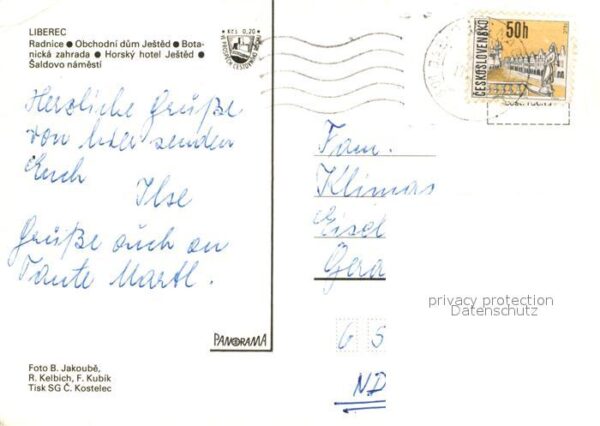 LIBEREC
Radnice ● Obchodní dům Ještěd ● Bota-
nická zahrada ● Horský hotel Ještěd ●
Šaldovo náměstí
Kčs 0,20
50h
ČESKOSLOVENSKO
Herzliche Grüße
von hier senden
Euch
Ilse
Grüße auch an
Tante Martl.
Fam.
Klimas
Eisel
Gera
privacy protection
Datenschutz
G S
ND
PANORAMA
Foto B. Jakoubě,
R. Kelbich, F. Kubík
Tisk SG Č. Kostelec